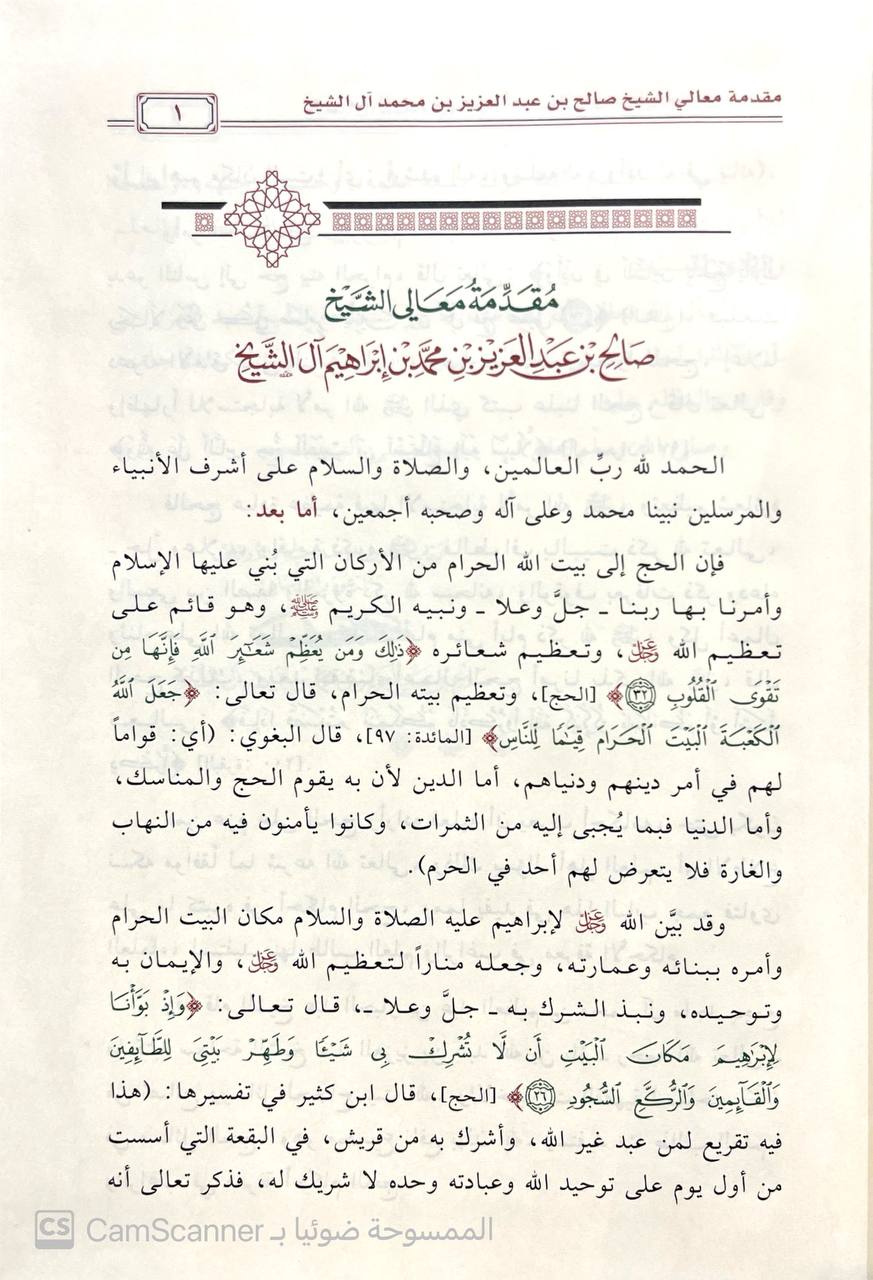 مقدمة معالي الشيخ صالح بن عبد العزيز بن محمد آل الشيخ
١
مُقَدِّمَةُ مَعَالِي الشَّيْخ
صَالِح بْن عَبْدِ الْعَزِيْز بْنِ مُحَمَّد بْن إِبْرَاهِيْم آلَ الشَّيْخ
الحمد لله ربِّ العالمين، والصلاة والسلام على أشرف الأنبياء
والمرسلين نبينا محمد وعلى آله وصحبه أجمعين، أما بعد:
فإن الحج إلى بيت الله الحرام من الأركان التي بُني عليها الإسلام
وأمرنا بها ربنا ـ جلَّ وعلا ـ ونبيه الكريم ﷺ، وهو قائم على
تعظيم الله عزوجل، وتعظيم شعائره ﴿ذَٰلِكَ وَمَن يُعَظِّمْ شَعَٰٓئِرَ ٱللَّهِ فَإِنَّهَا مِن
تَقْوَى ٱلْقُلُوبِ ٣٢﴾ [الحج]، وتعظيم بيته الحرام، قال تعالى: ﴿جَعَلَ ٱللَّهُ
ٱلْكَعْبَةَ ٱلْبَيْتَ ٱلْحَرَامَ قِيَٰمًا لِّلنَّاسِ﴾ [المائدة: ٩٧]، قال البغوي: (أي: قواماً
لهم في أمر دينهم ودنياهم، أما الدين لأن به يقوم الحج والمناسك،
وأما الدنيا فبما يُجبى إليه من الثمرات، وكانوا يأمنون فيه من النهاب
والغارة فلا يتعرض لهم أحد في الحرم).
وقد بيَّن الله عزوجل لإبراهيم عليه الصلاة والسلام مكان البيت الحرام
وأمره ببنائه وعمارته، وجعله مناراً لتعظيم الله عزوجل، والإيمان به
وتوحيده، ونبذ الشرك به ـ جلَّ وعلا ـ، قال تعالى: ﴿وَإِذْ بَوَّأْنَا
لِإِبْرَٰهِيمَ مَكَانَ ٱلْبَيْتِ أَن لَّا تُشْرِكْ بِى شَيْـًٔا وَطَهِّرْ بَيْتِىَ لِلطَّآئِفِينَ
وَٱلْقَآئِمِينَ وَٱلرُّكَّعِ ٱلسُّجُودِ ٢٦﴾ [الحج]، قال ابن كثير في تفسيرها: (هذا
فيه تقريع لمن عبد غير الله، وأشرك به من قريش، في البقعة التي أسست
من أول يوم على توحيد الله وعبادته وحده لا شريك له، فذكر تعالى أنه
CS CamScanner الممسوحة ضوئيا بـ